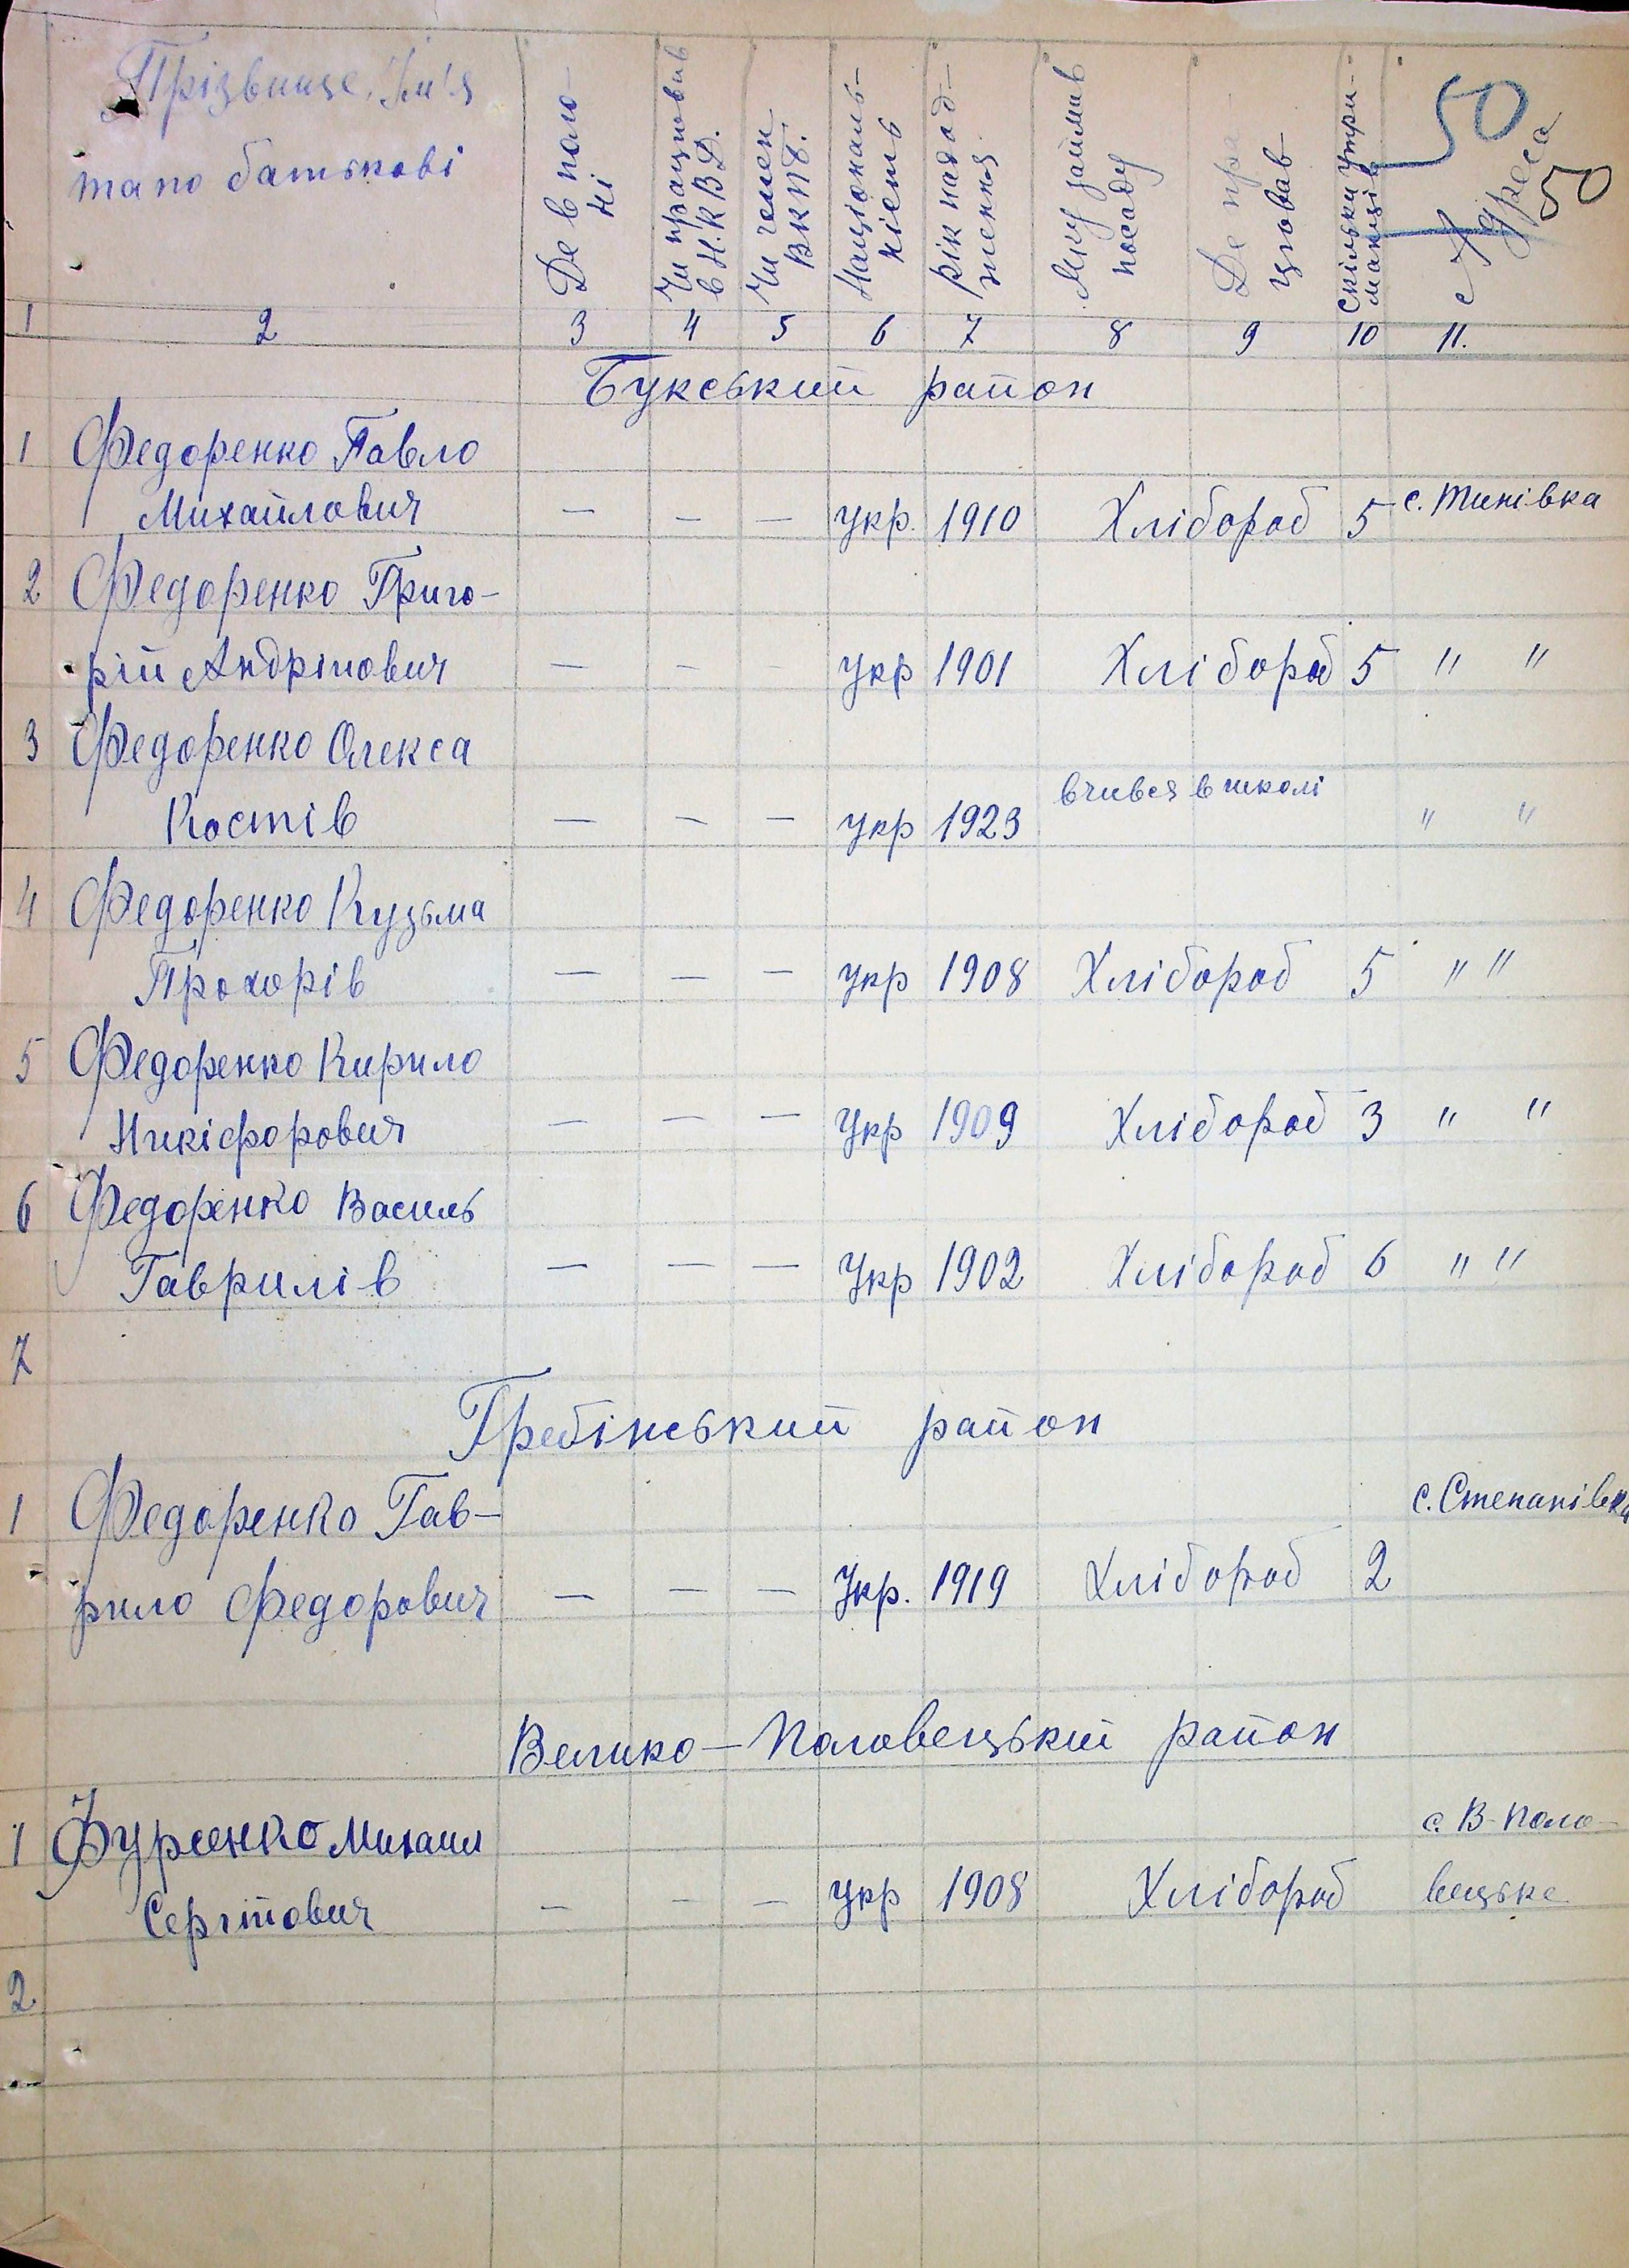 50
50
Прізвище, Ім'я
та по батькові
Де в поло-
ні
Чи працював
в Н.К.В.Д.
Чи член
ВКПб.
Національ-
ність
рік народ-
ження
Яку займав
посаду
Де пра-
цював
Скільки утри-
манців
Адреса
1 2 3 4 5 6 7 8 9 10 11.
Букський район
1 Федоренко Павло
Михайлович — — — укр. 1910 Хлібороб 5 с. Тинівка
2 Федоренко Григо-
рій Андрійович — — — укр 1901 Хлібороб 5 " "
3 Федоренко Олекса
Костів — — — укр 1923 вчився в школі " "
4 Федоренко Кузьма
Прохорів — — — укр 1908 Хлібороб 5 " "
5 Федоренко Кирило
Никіфорович — — — Укр 1909 Хлібороб 3 " "
6 Федоренко Василь
Гаврилів — — — Укр 1902 Хлібороб 6 " "
7
Гребінський район
1 Федоренко Гав-
рило Федорович — — — Укр. 1919 Хлібороб 2 с. Степанівка
Велико-Половецький район
1 Фурсенко Михаил
Сергійович — — — укр 1908 Хлібороб с. В-Поло-
вецьке
2.